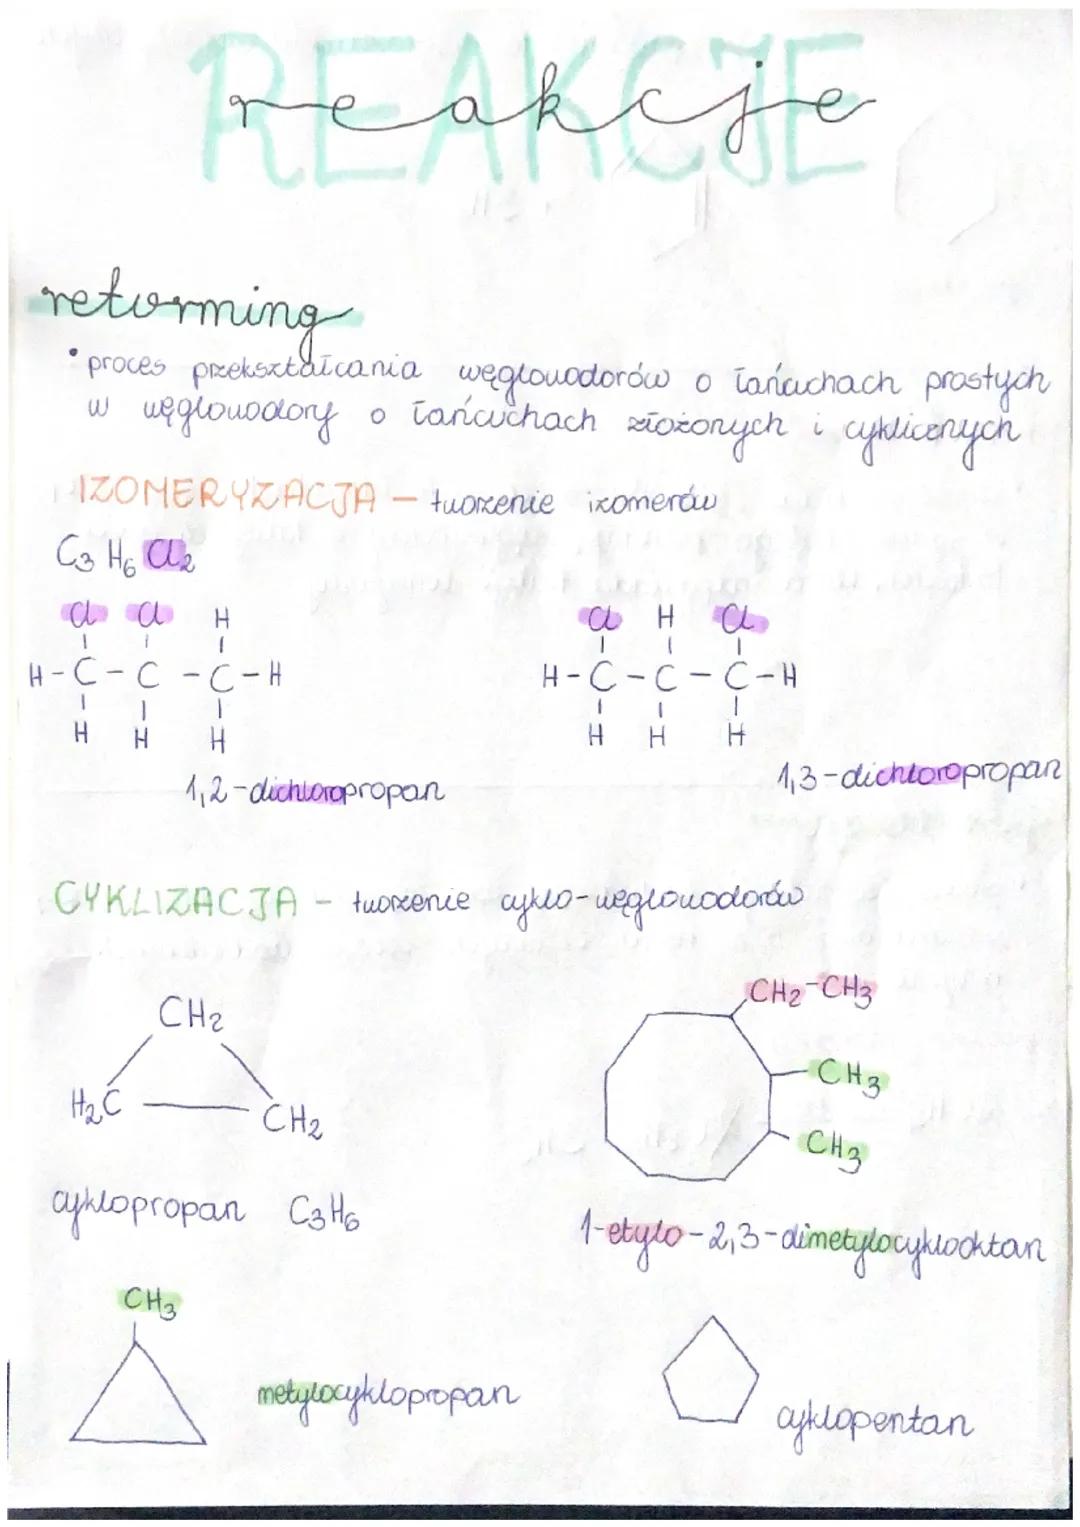 REAKCJE
reakcje
reforming
• proces przekształcania węglowodorów o łańcuchach prostych
w węglowodory o łańcuchach złożonych i cyklicznych
IZOMERYZACJA – tworzenie izomerów
C3 H6 Cl2
Cl Cl H
H-C-C-C-H
H H H
1,2-dichloropropan
Cl H Cl
H-C-C-C-H
H H H
1,3-dichloropropan
CYKLIZACJA – tworzenie cyklo-węglowodorów
CH2
H2C CH2
cyklopropan C3H6
CH2-CH3
CH3
CH3
1-etylo-2,3-dimetylocyklooktan
CH3
metylocyklopropan
cyklopentan